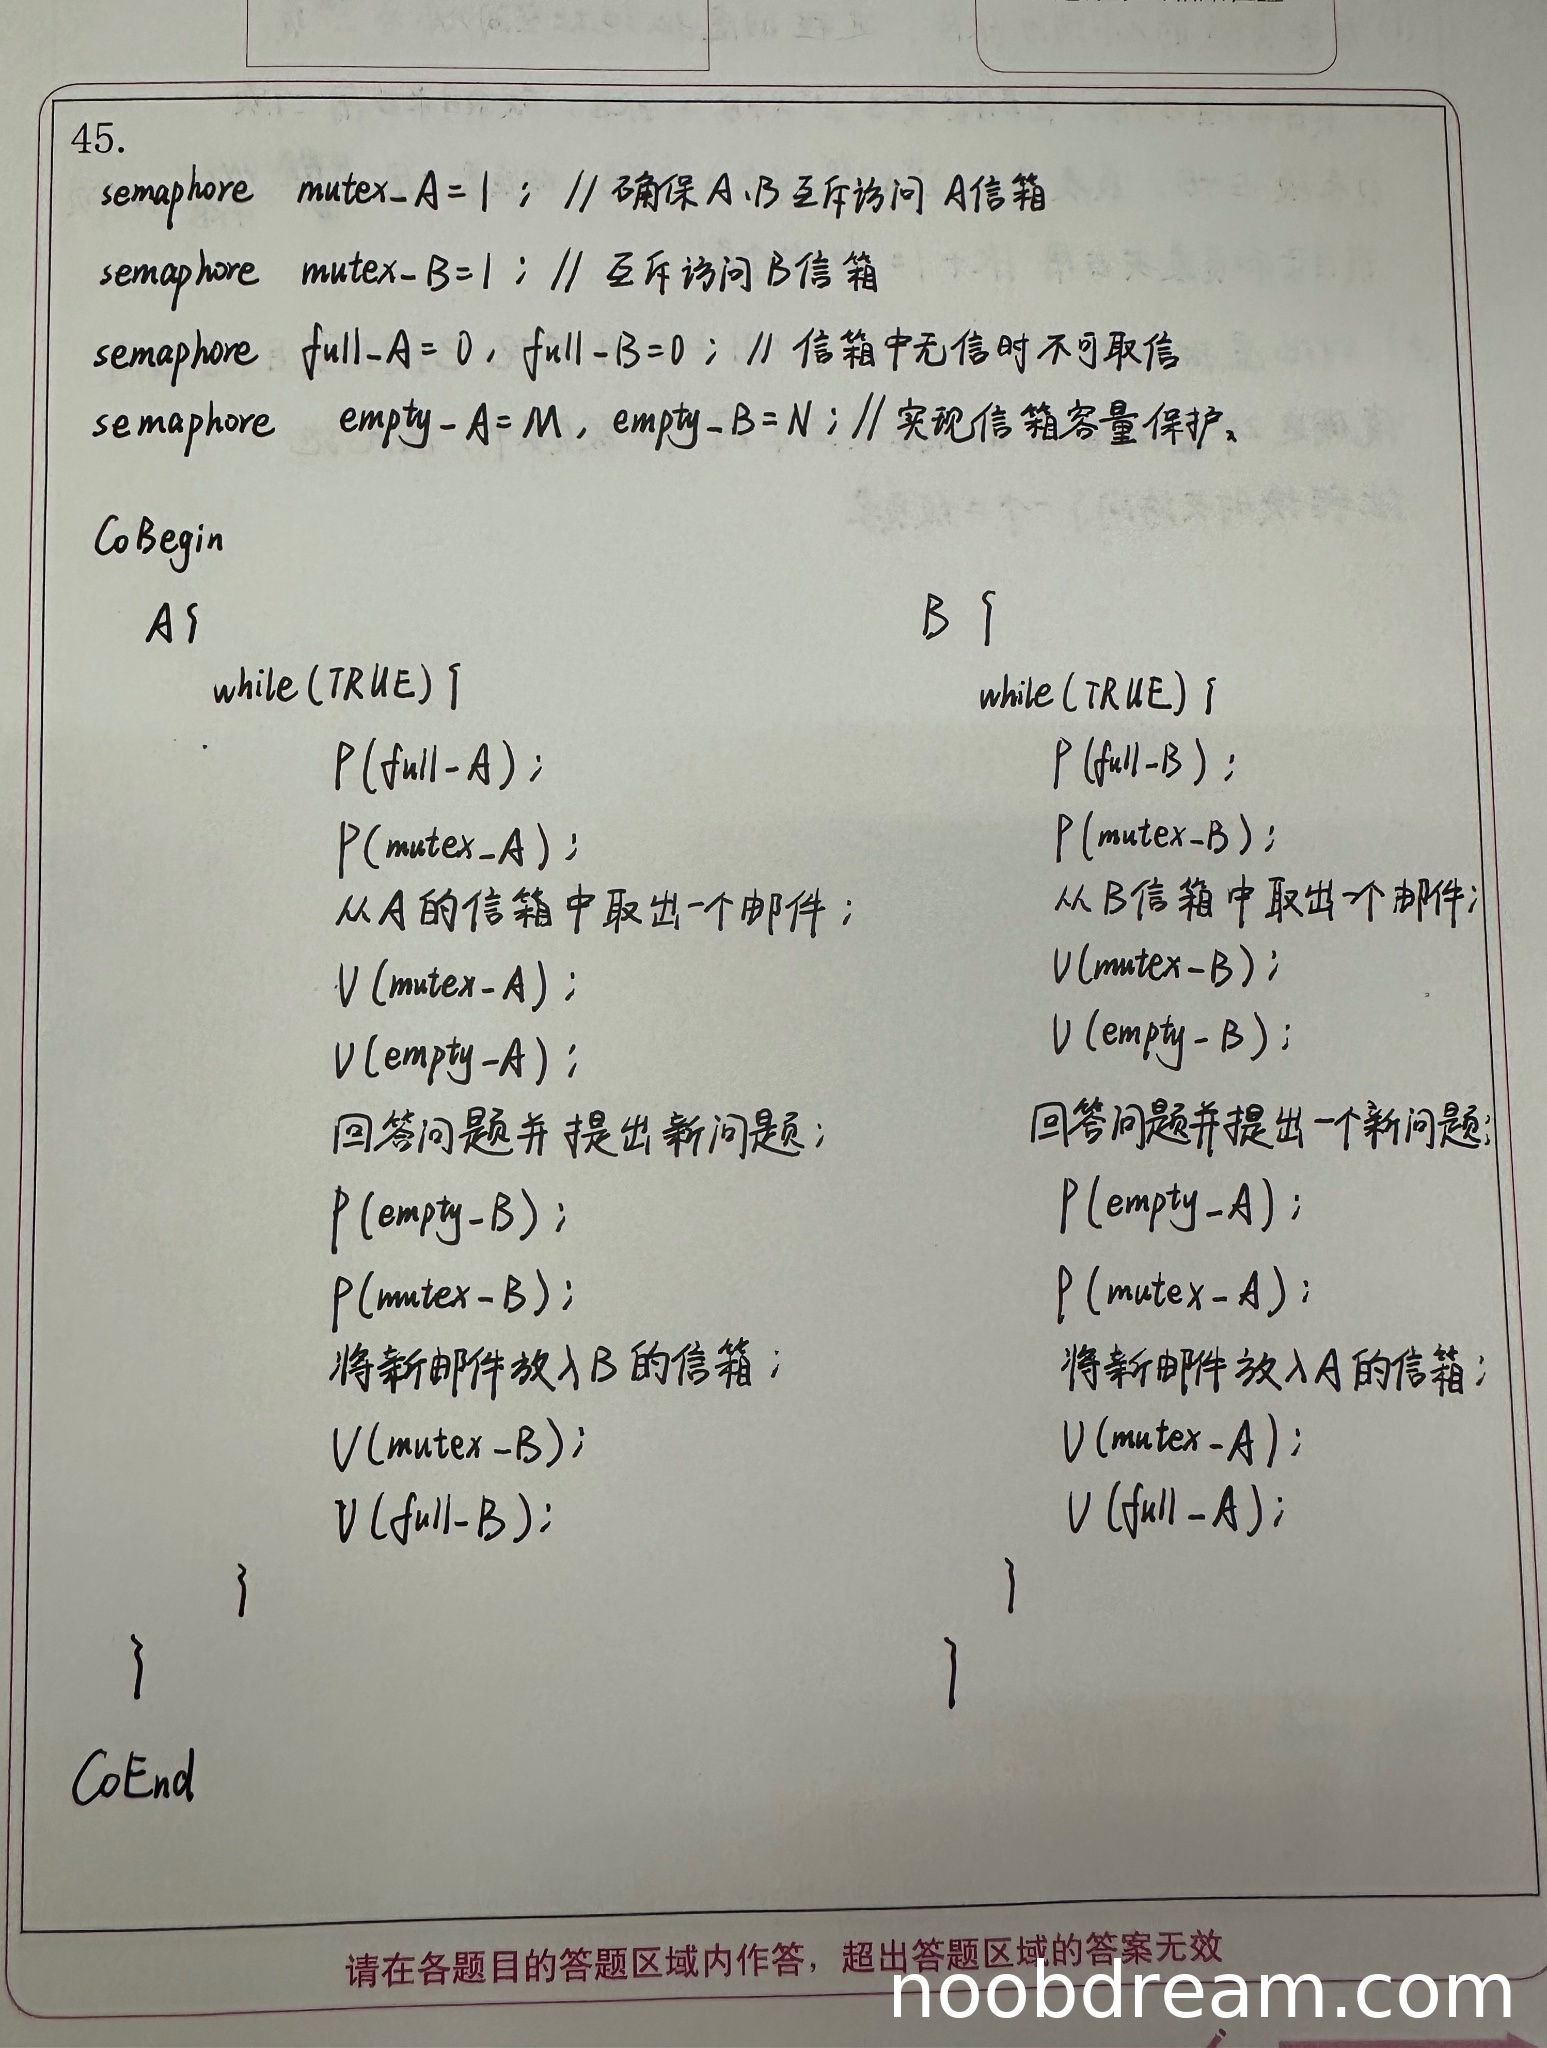 45.
semaphore mutex_A=1; // 确保A、B互斥访问A信箱
semaphore mutex-B=1; // 互斥访问B信箱
semaphore full_A=0, full-B=0; // 信箱中无信时不可取信
semaphore empty_A=M, empty_B=N; // 实现信箱容量保护。
CoBegin
A{
while(TRUE){
P(full-A);
P(mutex_A);
从A的信箱中取出一个邮件;
V(mutex-A);
V(empty-A);
回答问题并提出新问题;
P(empty-B);
P(mutex-B);
将新邮件放入B的信箱;
V(mutex-B);
V(full-B);
}
}
B {
while(TRUE){
P(full-B);
P(mutex-B);
从B信箱中取出一个邮件;
V(mutex-B);
V(empty-B);
回答问题并提出一个新问题;
P(empty-A);
P(mutex-A);
将新邮件放入A的信箱;
V(mutex-A);
V(full-A);
}
}
CoEnd
请在各题目的答题区域内作答，超出答题区域的答案无效
noobdream.com